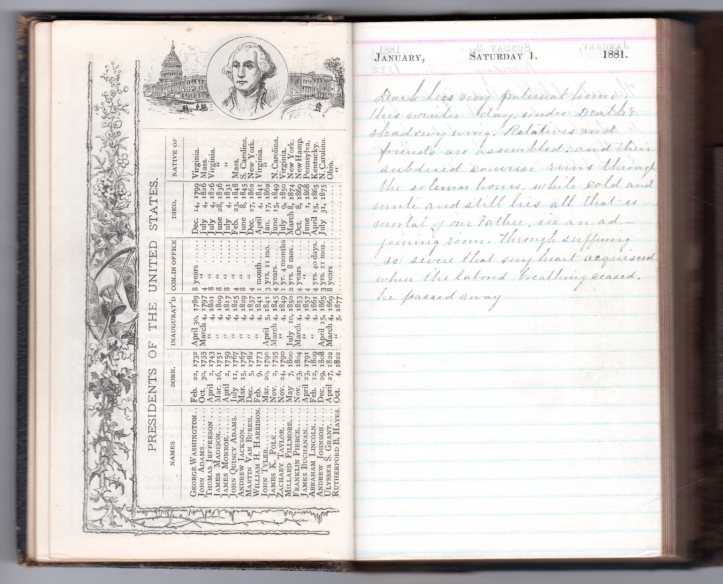 PRESIDENTS OF THE UNITED STATES.
NAMES BORN. INAUGURAT'D CON. IN OFFICE DIED. NATIVE OF
GEORGE WASHINGTON. Feb. 22, 1732 April 30, 1789 8 years Dec. 14, 1799 Virginia.
JOHN ADAMS Oct. 30, 1735 March 4, 1797 4 " July 4, 1826 Mass.
THOMAS JEFFERSON April 2, 1743 " 4, 1801 8 " July 4, 1826 Virginia.
JAMES MADISON Mar. 16, 1751 " 4, 1809 8 " June 28, 1836 "
JAMES MONROE April 2, 1759 " 4, 1817 8 " July 4, 1831 "
JOHN QUINCY ADAMS. July 11, 1767 " 4, 1825 4 " Feb. 23, 1848 Mass.
ANDREW JACKSON Mar. 15, 1767 " 4, 1829 8 " June 8, 1845 S. Carolina.
MARTIN VAN BUREN. Dec. 5, 1782 " 4, 1837 4 " Dec. 27, 1862 New York.
WILLIAM H. HARRISON. Feb. 9, 1773 " 4, 1841 1 month April 4, 1841 Virginia.
JOHN TYLER Mar. 29, 1790 April 5, 1841 3 yrs. 11 mo. Jan. 17, 1862 "
JAMES K. POLK Nov. 2, 1795 March 4, 1845 4 years June 15, 1849 N. Carolina.
ZACHARY TAYLOR Nov. 24, 1790 " 4, 1849 1 yr. 4 months July 9, 1850 Virginia.
MILLARD FILLMORE May. 7, 1800 July 10, 1850 2 yrs. 8 mos. March 8, 1874 New York.
FRANKLIN PIERCE Nov. 23, 1804 March 4, 1853 4 years Oct. 8, 1869 New Hamp.
JAMES BUCHANAN April 23, 1791 " 4, 1857 4 " June 1, 1868 Pennsylva.
ABRAHAM LINCOLN Feb. 12, 1809 " 4, 1861 4 yrs. 40 days. April 15, 1865 Kentucky.
ANDREW JOHNSON Dec. 29, 1808 April 15, 1865 3 yrs. 11 mos. July 31, 1875 N. Carolina.
ULYSSES S. GRANT April 27, 1822 March 4, 1869 8 years Ohio.
RUTHERFORD B. HAYES. Oct. 4, 1822 " 5, 1877 "
JANUARY, SATURDAY 1. 1881.
Dark lies my paternal home
this winter day, under Death's
shadowy wing. Relatives and
friends are assembled, and their
subdued converse runs through
the solemn hours, while cold and
mute and still lies all that is
mortal of our Father, in an ad
joining room. Through suffering
so severe that every heart acquiesced
when the labored breathing ceased.
he passed away